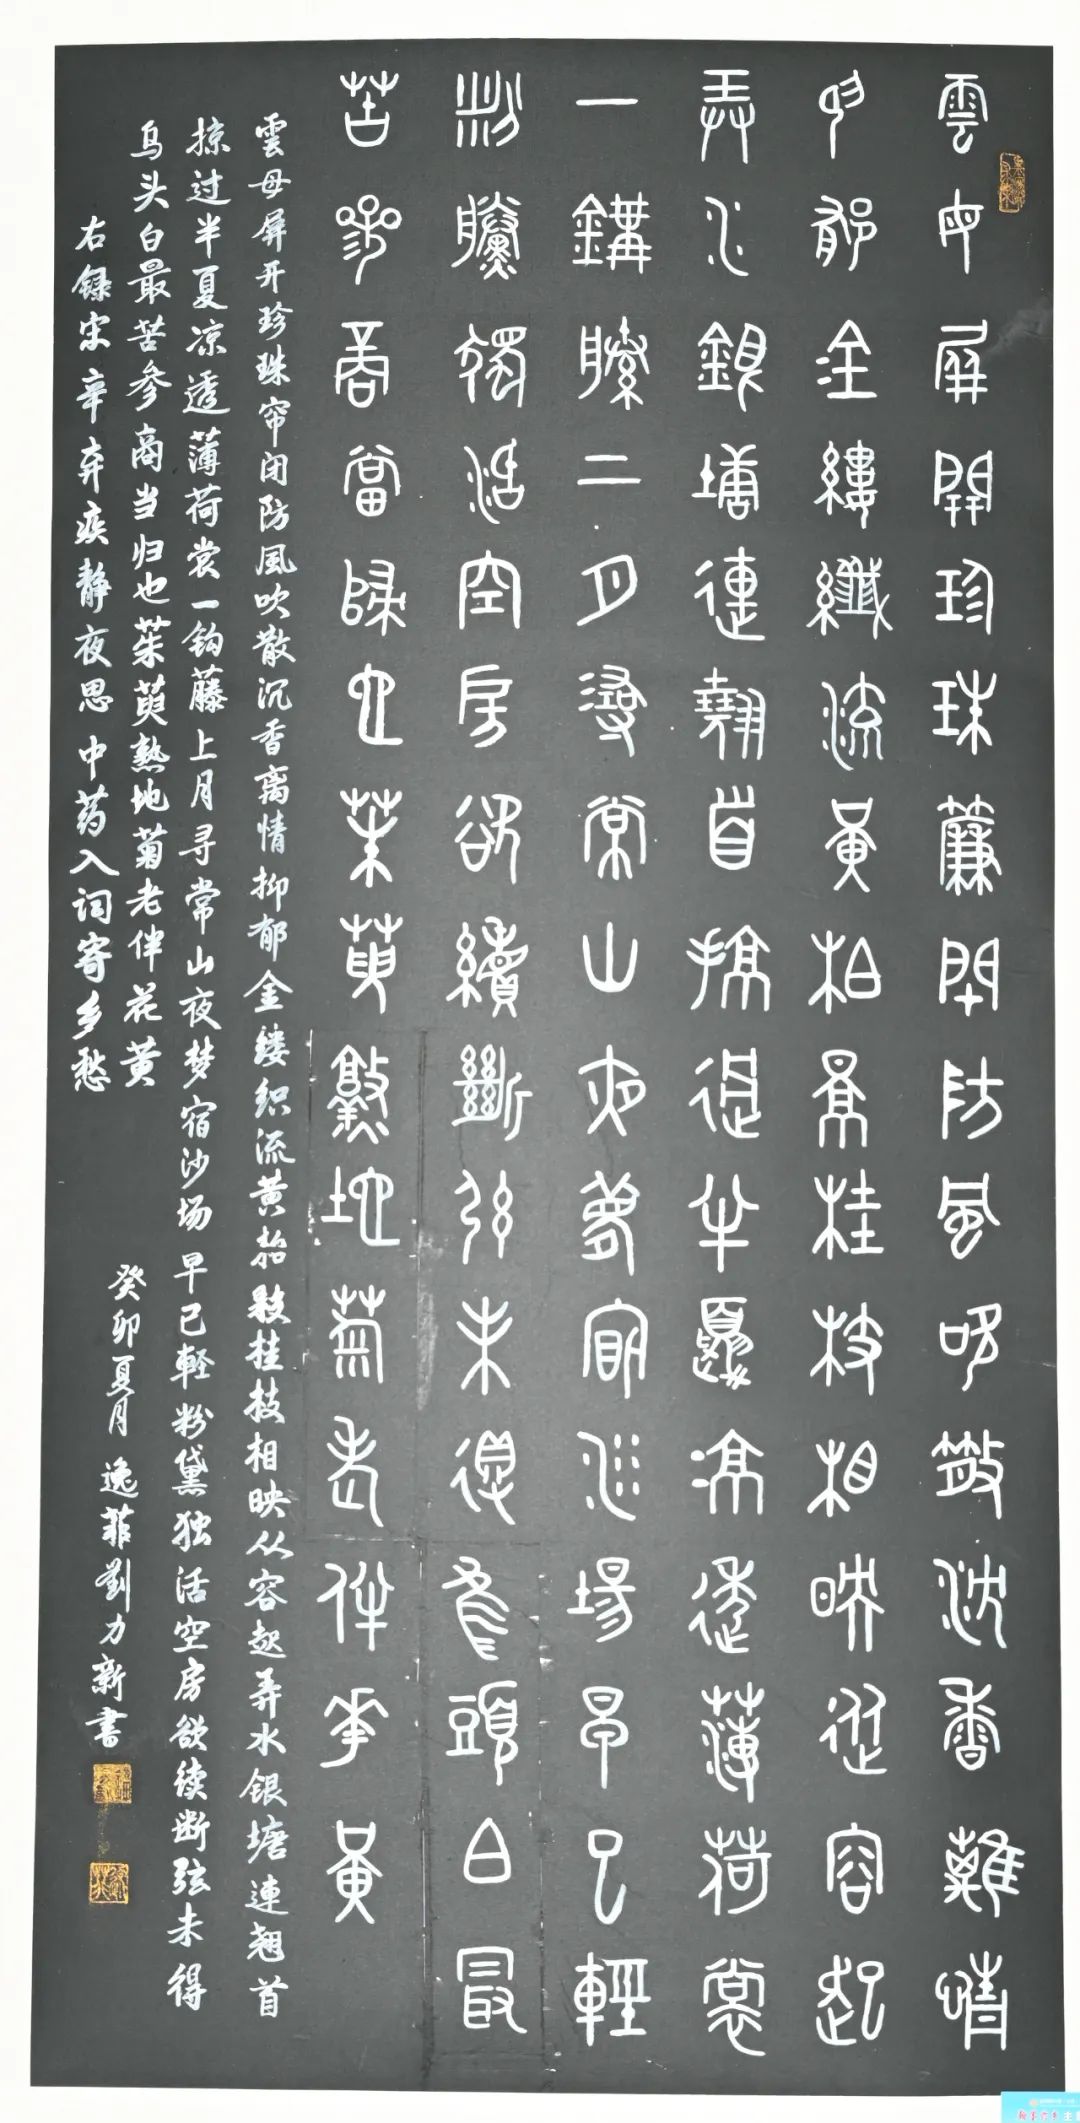 雲母屏開珍珠簾閉防風吹散沈香離情
抑郁金縷織流黃柏桂枝相映從容起
弄水銀塘連翹首掠過半夏涼透薄荷裳
一鉤藤上月尋常山夜夢宿沙場早已輕
粉黛獨活空房欲續斷弦未得烏頭白最
苦參商當歸也茱萸熟地菊老伴花黃
雲母屏开珍珠帘闭防風吹散沉香离情抑郁金缕织流黄桂枝相映从容起弄水银塘連翘首
掠过半夏凉透薄荷裳一钩藤上月寻常山夜梦宿沙场早已軽粉黛独活空房欲续断弦未得
乌头白最苦参商当归也茱萸熟地菊老伴花黄
右録宋辛弃疾静夜思中药入词寄乡愁
癸卯夏月逸菲劉力新書